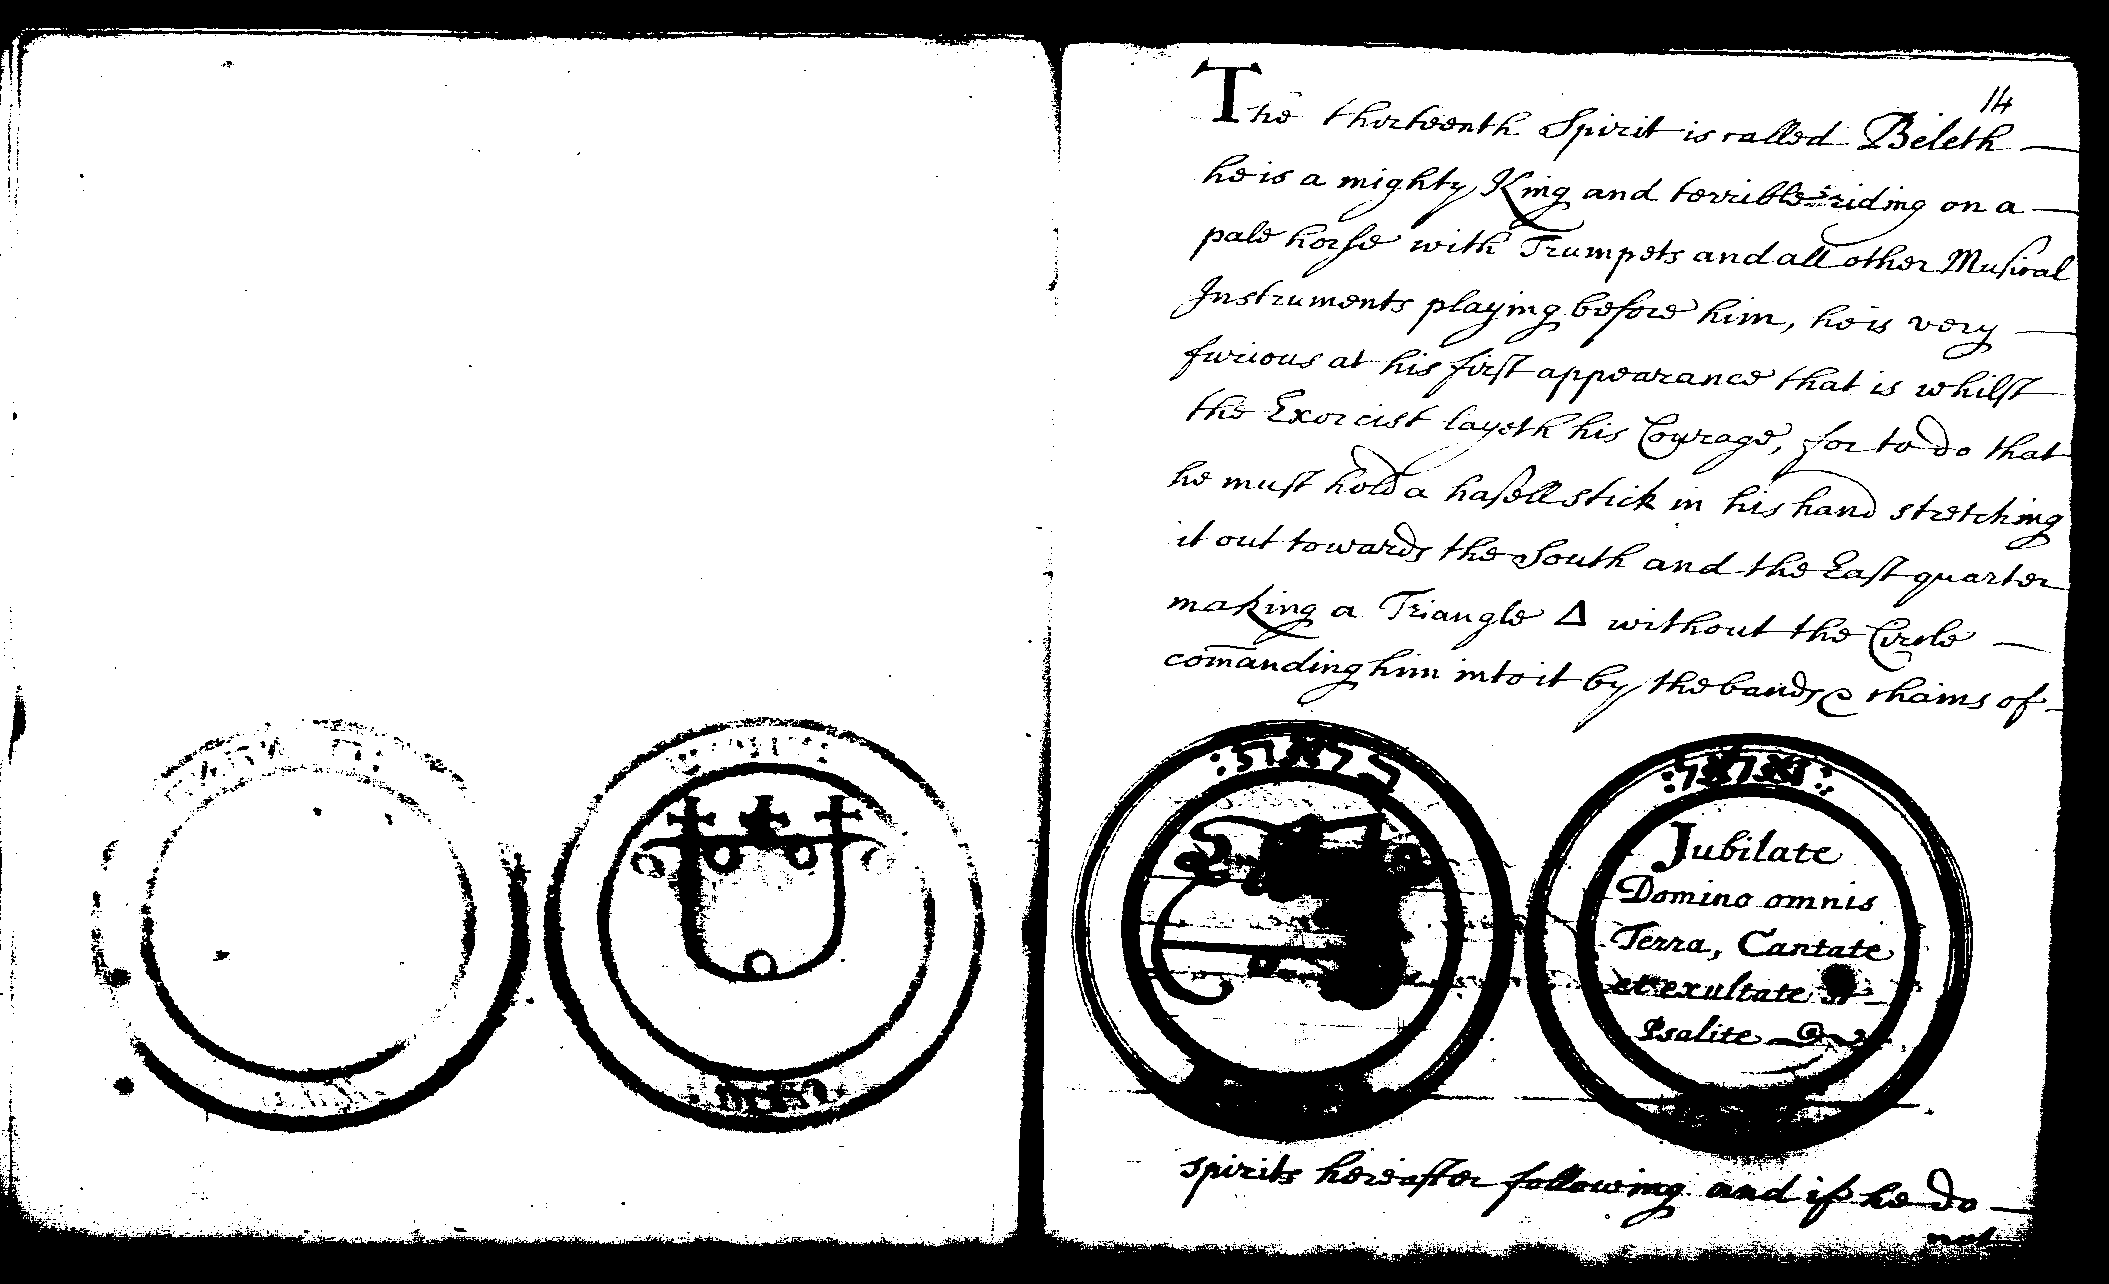 14
The thirteenth Spirit is called Beleth —
he is a mighty King and terrible riding on a —
pale horse with Trumpets and all other Musical
Instruments playing before him, he is very —
furious at his first appearance that is whilst
the Exorcist layeth his Courage, for to do that
he must hold a hasell stick in his hand stretching
it out towards the South and the East quarter
making a Triangle Δ without the Circle —
com̄anding him into it by the bands & chains of
Jubilate
Domino omnis
Terra, Cantate
et exultate et
Psalite
spirits hereafter following and if he do —
not